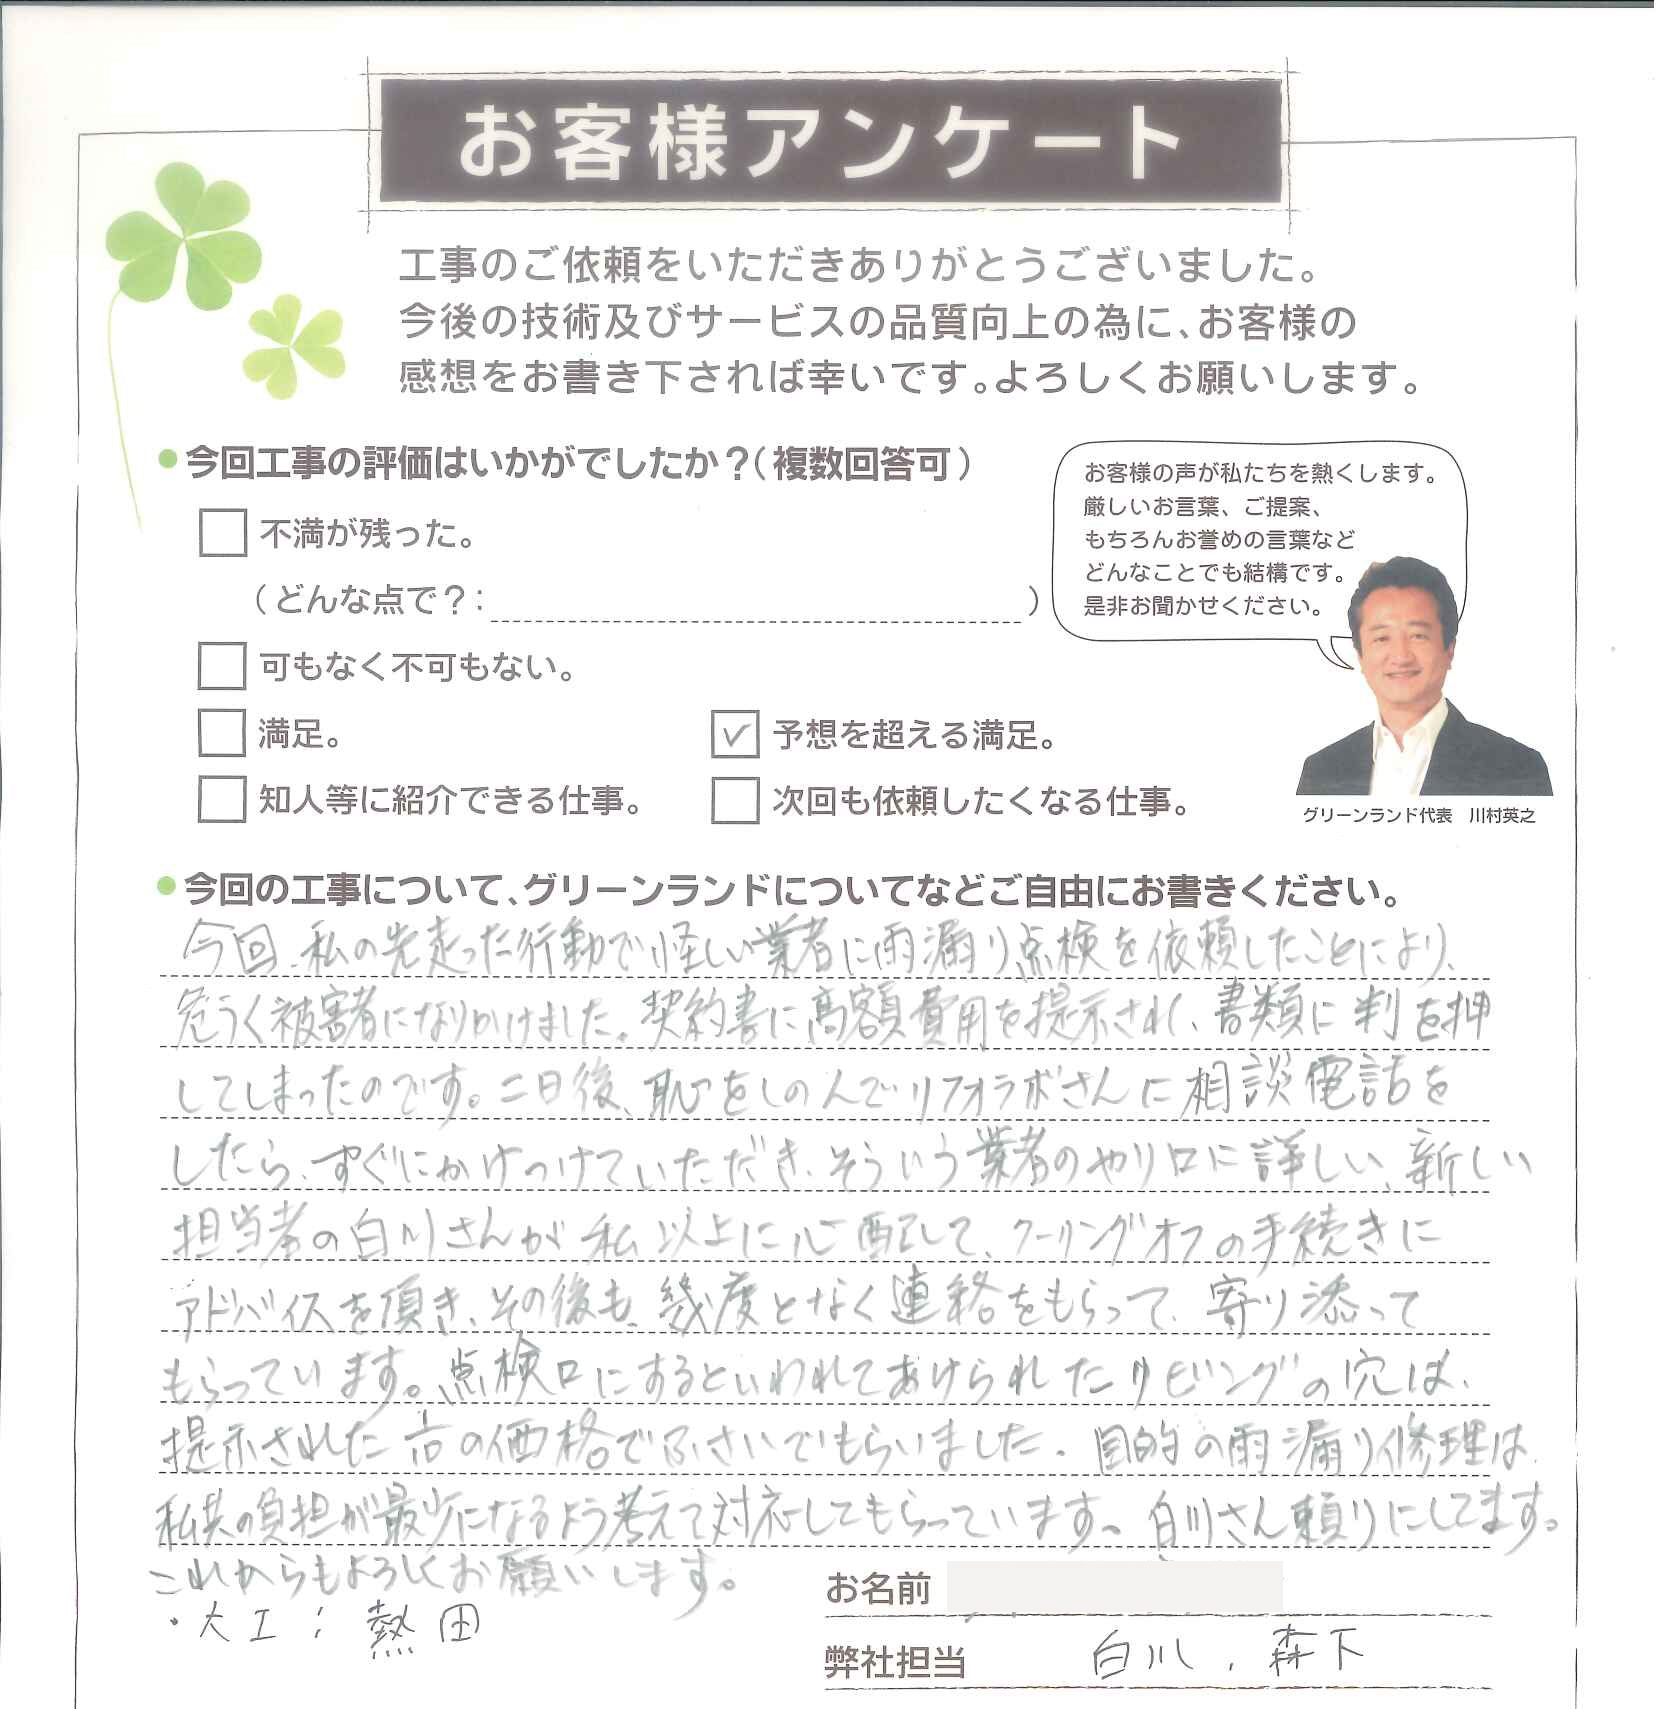 お客様アンケート
工事のご依頼をいただきありがとうございました。
今後の技術及びサービスの品質向上の為に、お客様の
感想をお書き下されば幸いです。よろしくお願いします。
今回工事の評価はいかがでしたか?(複数回答可)
不満が残った。
(どんな点で?: )
可もなく不可もない。
満足。
✓ 予想を超える満足。
知人等に紹介できる仕事。
次回も依頼したくなる仕事。
お客様の声が私たちを熱くします。
厳しいお言葉、ご提案、
もちろんお誉めの言葉など
どんなことでも結構です。
是非お聞かせください。
グリーンランド代表 川村英之
今回の工事について、グリーンランドについてなどご自由にお書きください。
今回、私の先走った行動で怪しい業者に雨漏り点検を依頼したことにより、
危うく被害者になりかけました。契約書に高額費用を提示され、書類に判を押
してしまったのです。二日後、恥をしの人でリフォラボさんに相談電話を
したら、すぐにかけつけていただき、そういう業者のやり口に詳しい、新しい
担当者の白川さんが私以上に心配して、クーリングオフの手続きに
アドバイスを頂き、その後も、幾度となく連絡をもらって、寄り添って
もらっています。点検口にするといわれてあけられたリビングの穴は、
提示された の価格でふさいでもらいました。目的の雨漏り修理は、
私共の負担が最少になるよう考えて対応してもらっています。白川さん頼りにしてます。
これからもよろしくお願いします。
・大工:熱田
お名前
弊社担当 白川、森下